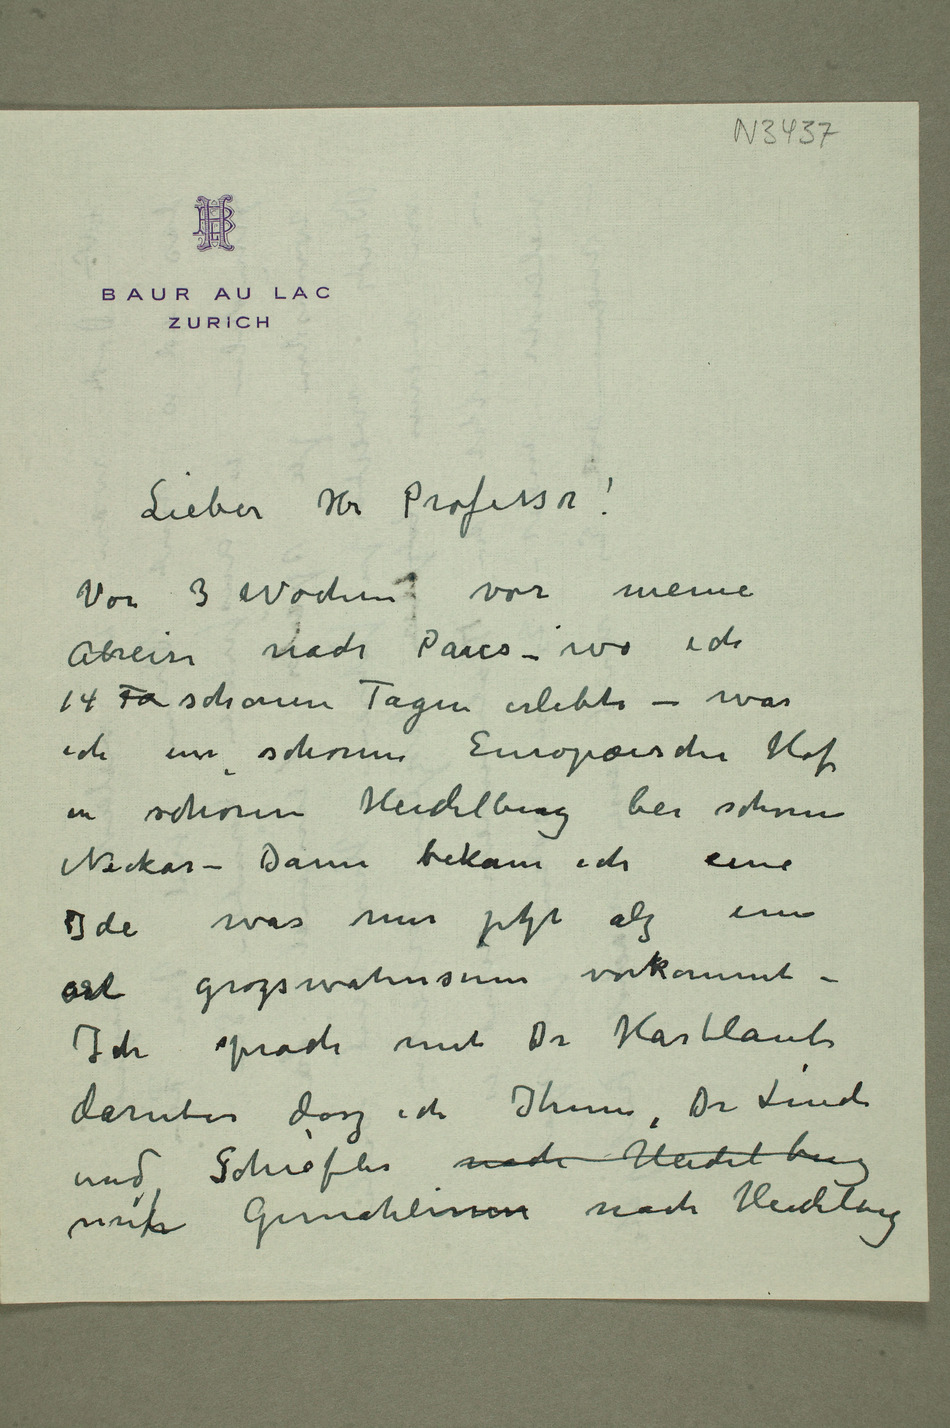 N3437
BAUR AU LAC
ZURICH
Lieber Hr Professor!
Vor 3 Wochen vor meine
Abreise nach Paris – wo ich
14 Ta schönen Tagen erlebte – war
ich im schönen Europäischer Hof
in schönen Heidelberg bei schönen
Neckar – Dann bekam ich eine
Ide was mir jetzt als eine
art grozswahnsinn vorkommt –
Ich sprach mit Dr Hartlaub
darüber dasz ich Ihnen, Dr Linde
und Schiefler nach Heidelberg
mit Gemahlinnen nach Heidelberg